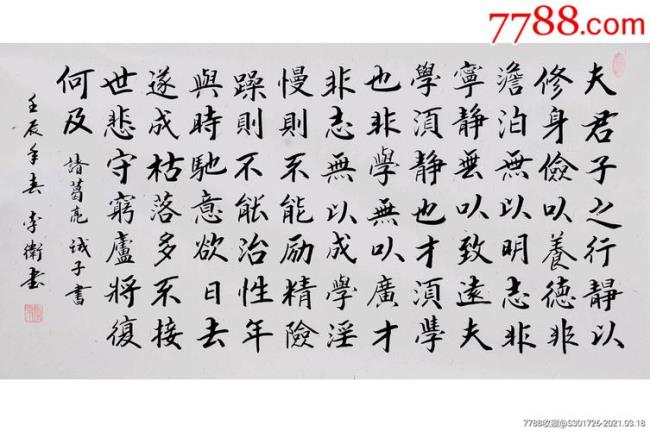 7788.com
夫君子之行靜以
修身儉以養德非
澹泊無以明志非
寧靜無以致遠夫
學須靜也才須學
也非學無以廣才
非志無以成學淫
慢則不能励精險
躁則不能治性年
與時馳意欲日去
遂成枯落多不接
世悲守窮廬將復
何及 諸葛亮誡子書
壬辰年春 李衛書
7788收藏@S301726-2021.03.18